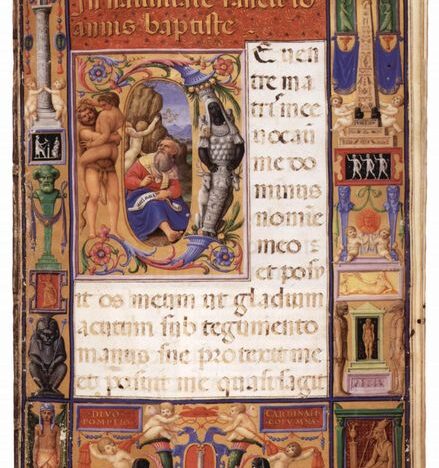 In nativitate sancti io
annis baptiste
DE ven
tre ma
tris mee
vocavit
me do
minus
nomīe
meo :
et posu
it os meum ut gladium
acutum sub tegumento
manus sue protexit me
et posuit me quasi sagit
DIVO
POMPEIO
CARDINALI
COLVMNA